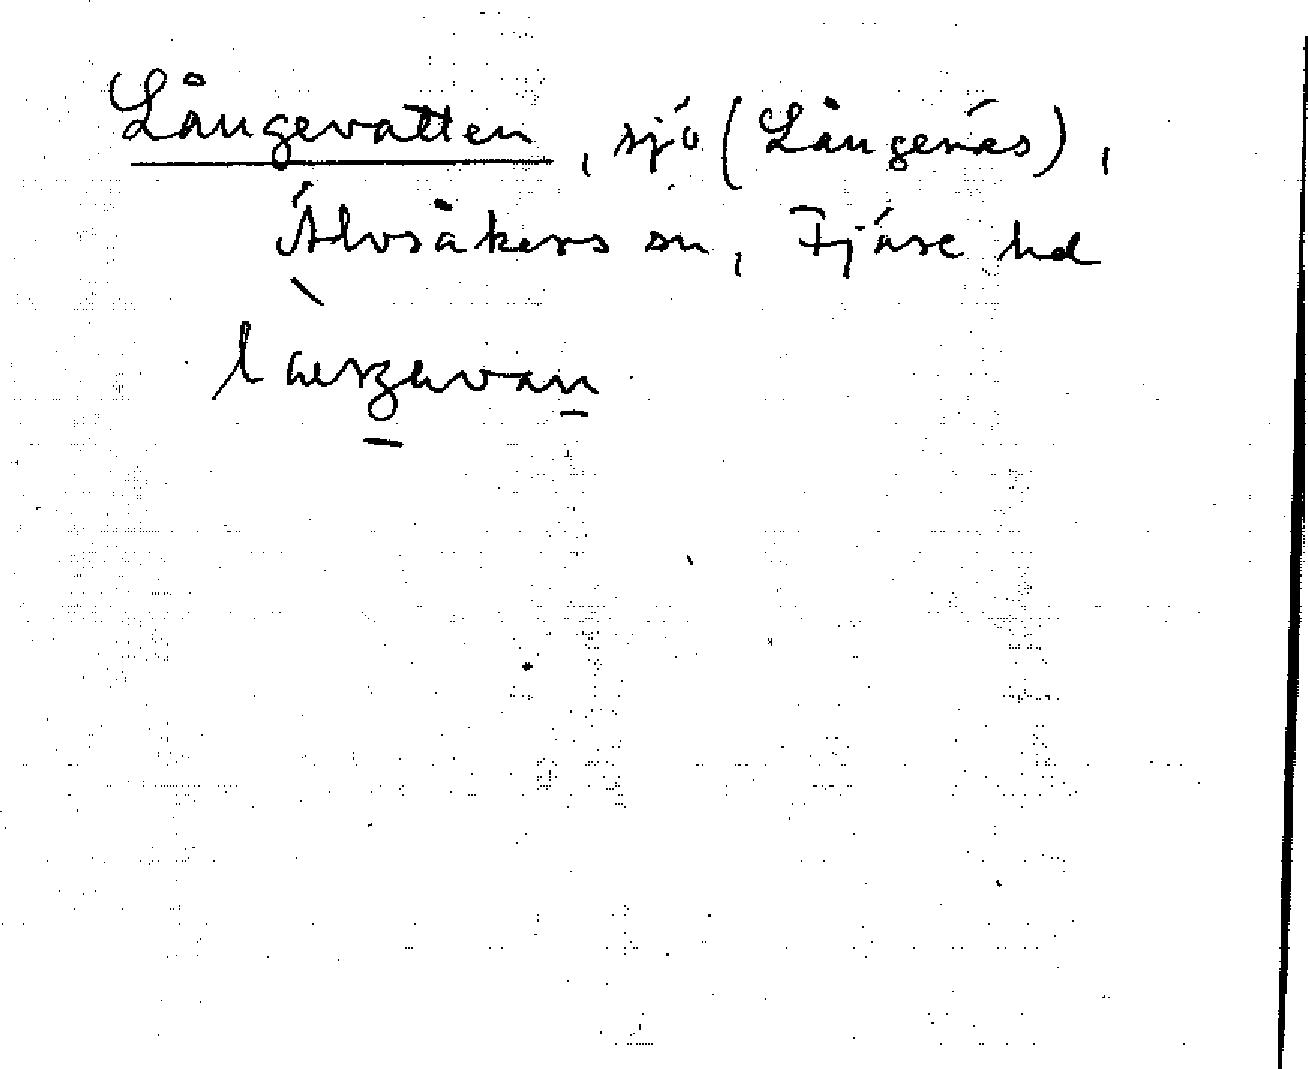 Långevatten, sjö (Långenäs),
Älvsåkers sn, Fjäre hd